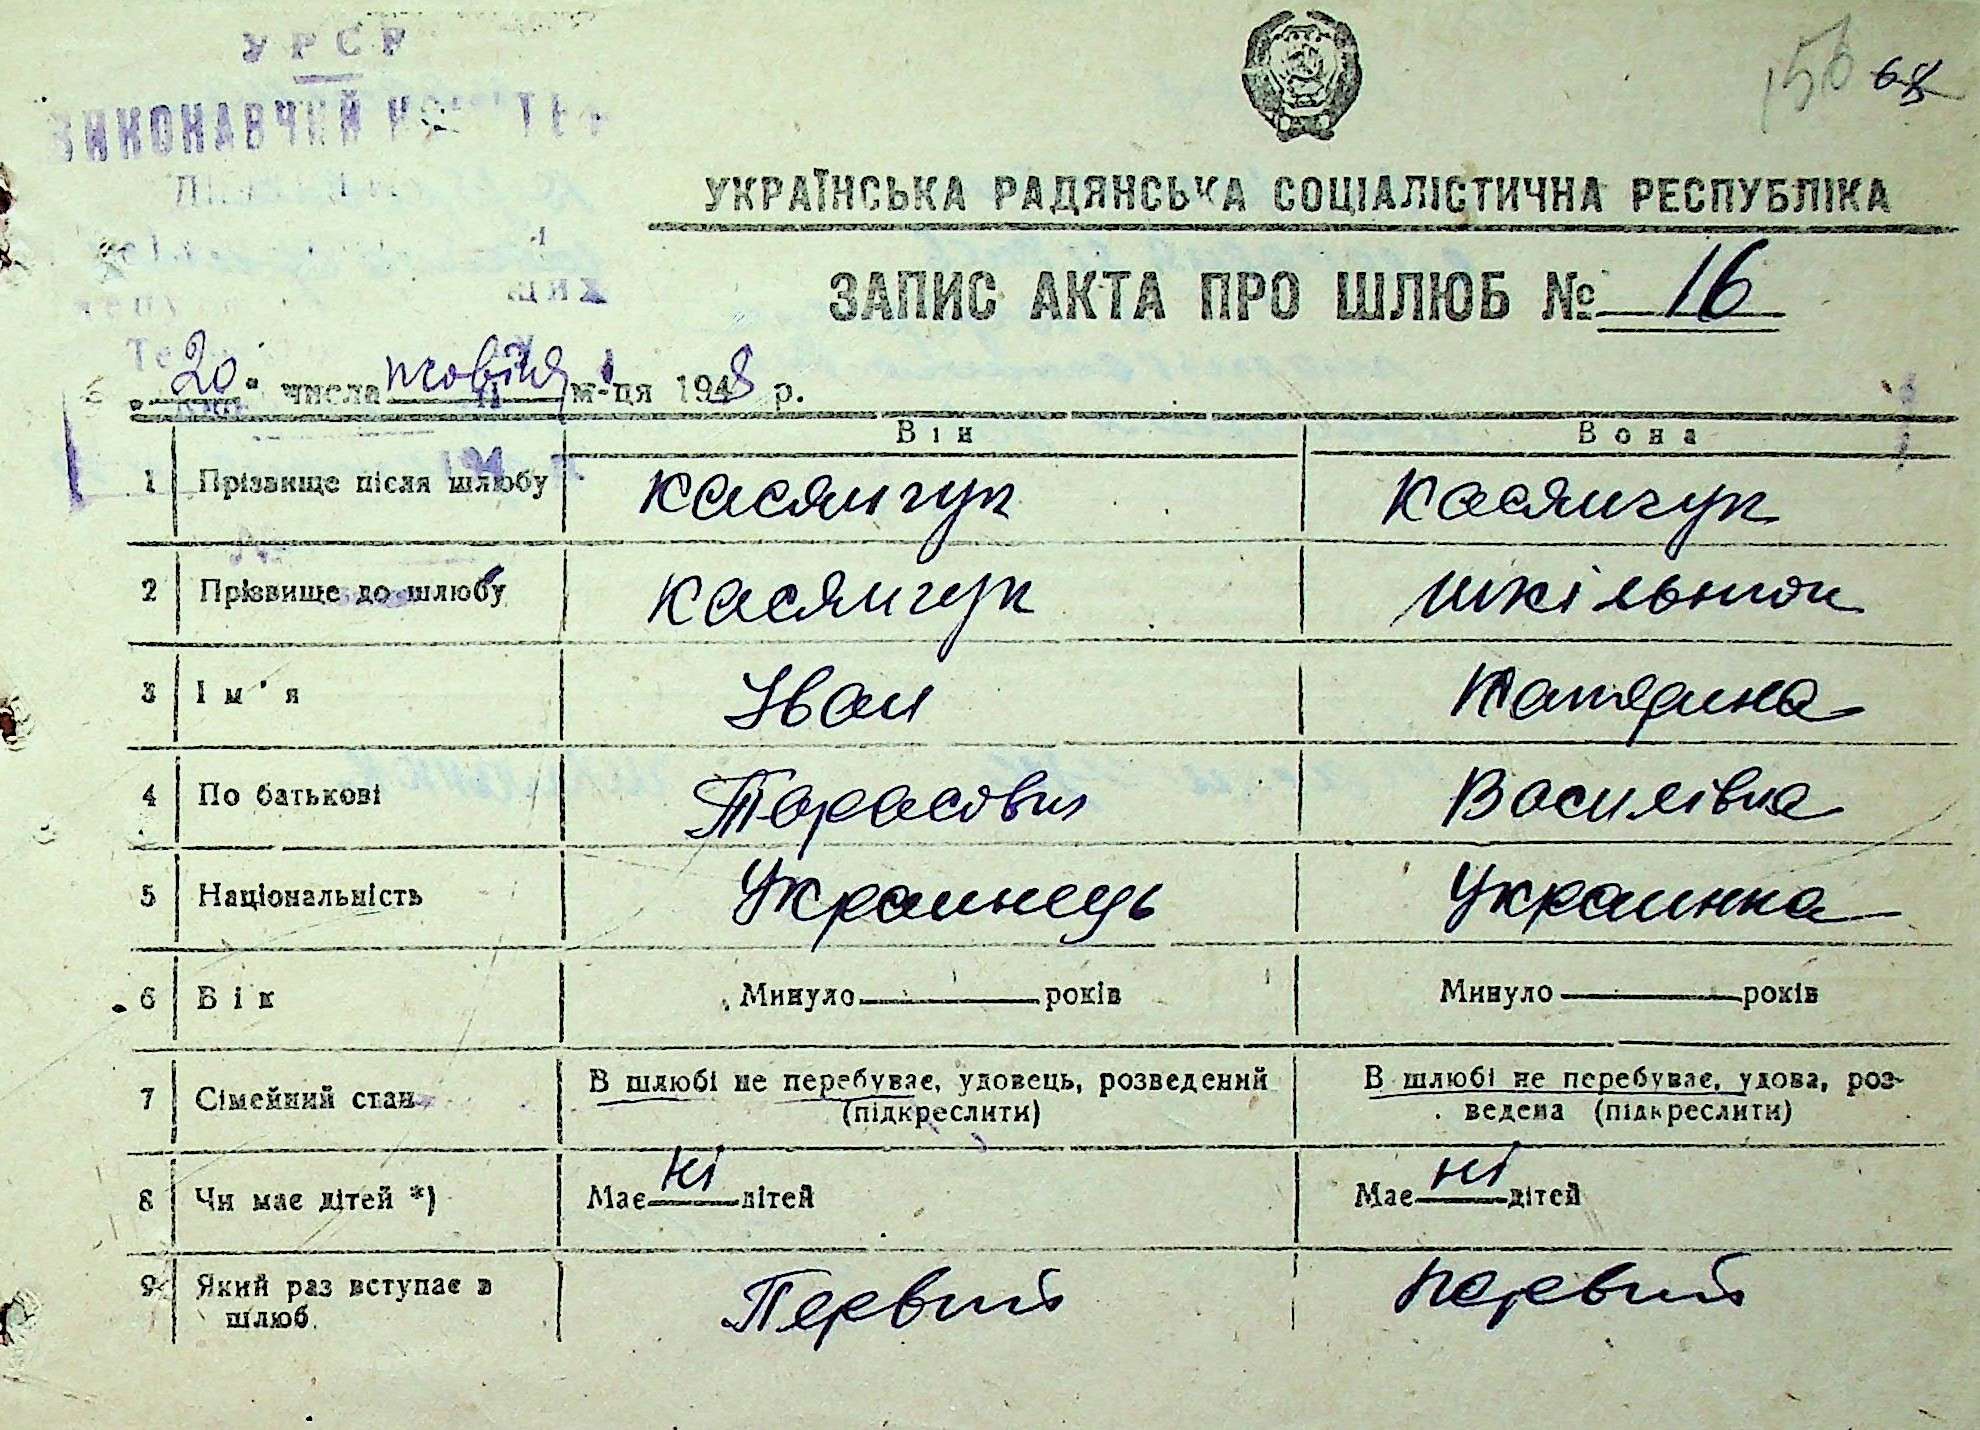 УРСР
ВИКОНАВЧИЙ
156 68
УКРАЇНСЬКА РАДЯНСЬКА СОЦІАЛІСТИЧНА РЕСПУБЛІКА
ЗАПИС АКТА ПРО ШЛЮБ № 16
20 числа жовтня м-ця 1948 р.
Він Вона
1 Прізвище після шлюбу Касянчук Касянчук
2 Прізвище до шлюбу Касянчук Шкільнюк
3 Ім'я Іван Катерина
4 По батькові Тарасович Василівна
5 Національність Украинець Украинка
6 Вік Минуло років Минуло років
7 Сімейний стан В шлюбі не перебуває, удовець, розведений В шлюбі не перебуває, удова, роз-
(підкреслити) ведена (підкреслити)
8 Чи має дітей *) Має ні дітей Має ні дітей
9 Який раз вступає в Первий Первий
шлюб